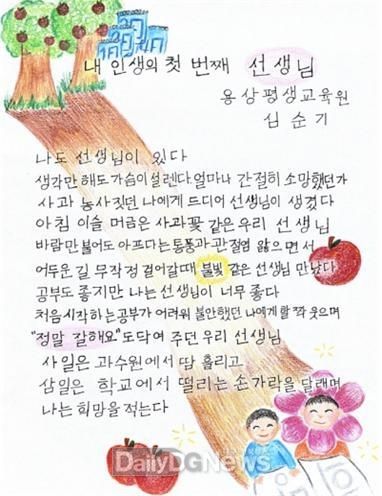 내 인생의 첫 번째 선생님
용상평생교육원
심순기
나도 선생님이 있다
생각만해도 가슴이 설렌다. 얼마나 간절히 소망했던가
사과 농사짓던 나에게 드디어 선생님이 생겼다
아침 이슬 머금은 사과꽃 같은 우리 선생님
바람만 불어도 아프다는 통풍과 관절염 앓으면서
어두운 길 무작정 걸어갈때 불빛 같은 선생님 만났다
공부도 좋지만 나는 선생님이 너무 좋다
처음 시작하는 공부가 어려워 불안했던 나에게 활짝 웃으며
"정말 잘해요" 도닥여 주던 우리 선생님
사일은 과수원에서 땀 흘리고
삼일은 학교에서 떨리는 손가락을 달래며
나는 희망을 적는다
DailyDGNews